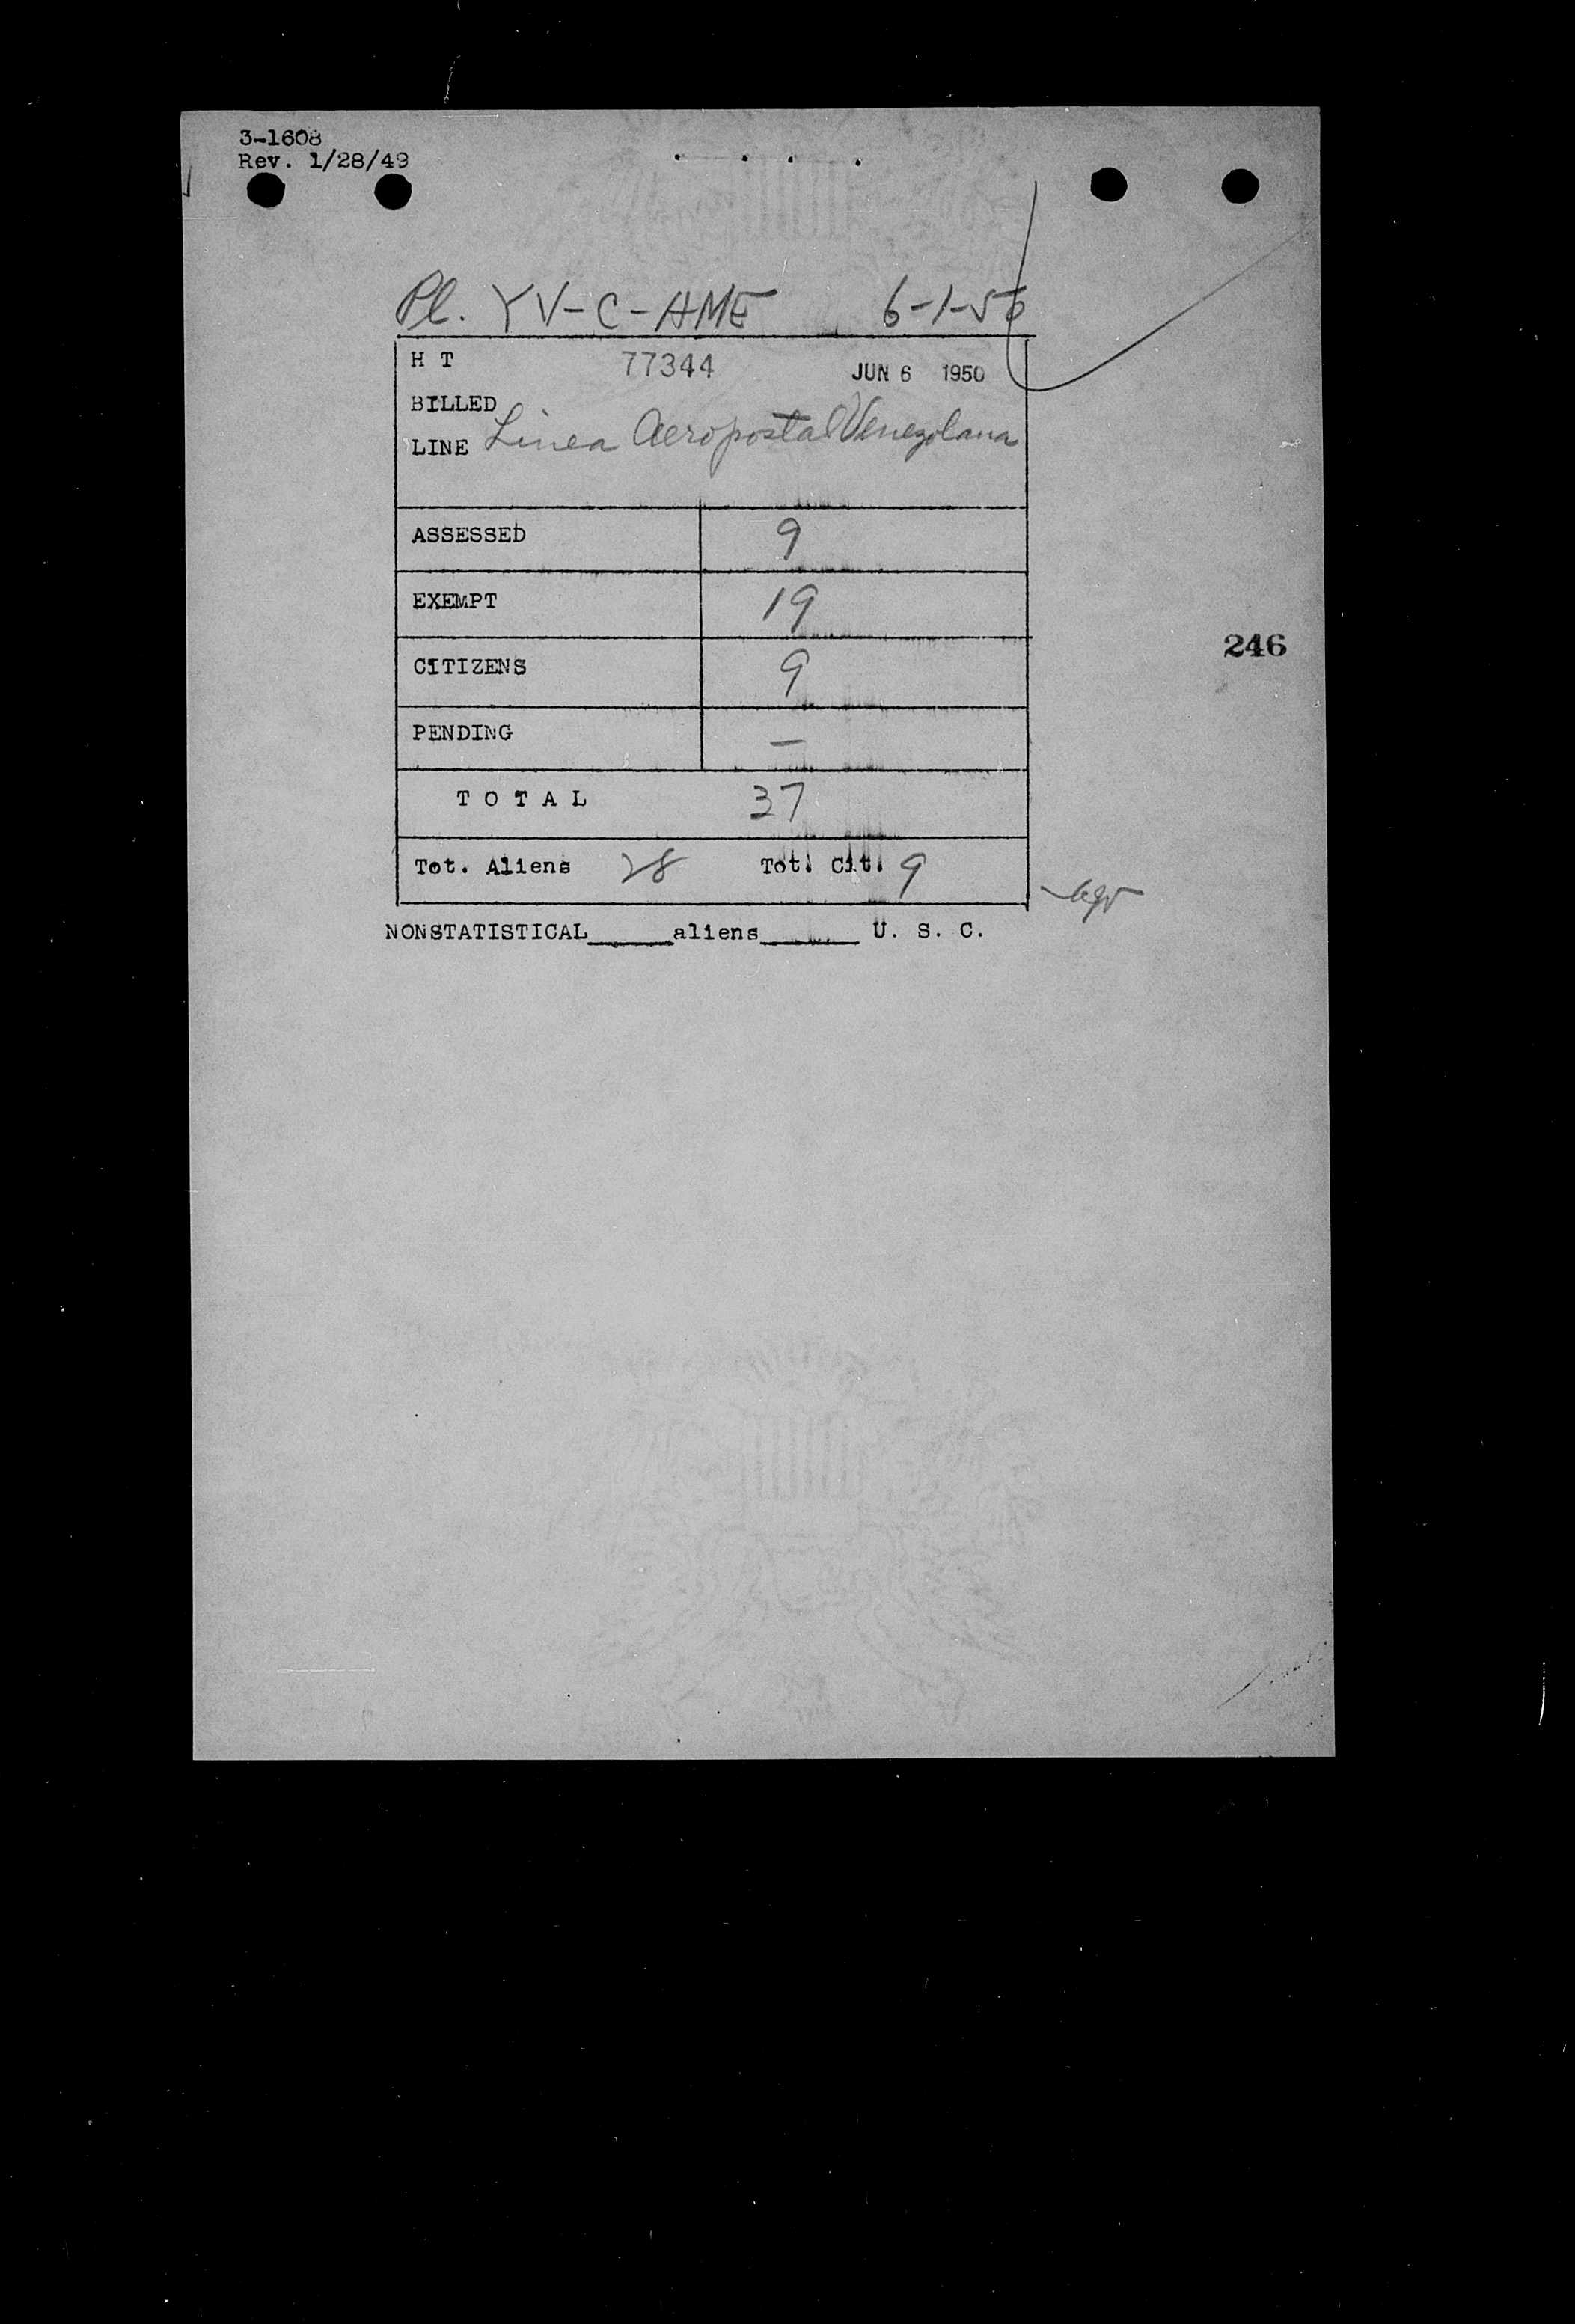 3-1608
Rev. 1/28/49
Pl. YV-C-AME 6-1-50
H T 77344 JUN 6 1950
BILLED
LINE Linea Aeropostal Venezolana
ASSESSED 9
EXEMPT 19
246
CITIZENS 9
PENDING —
T O T A L 37
Tot. Aliens 28 Tot. Cit. 9
NONSTATISTICAL_____aliens______ U. S. C.